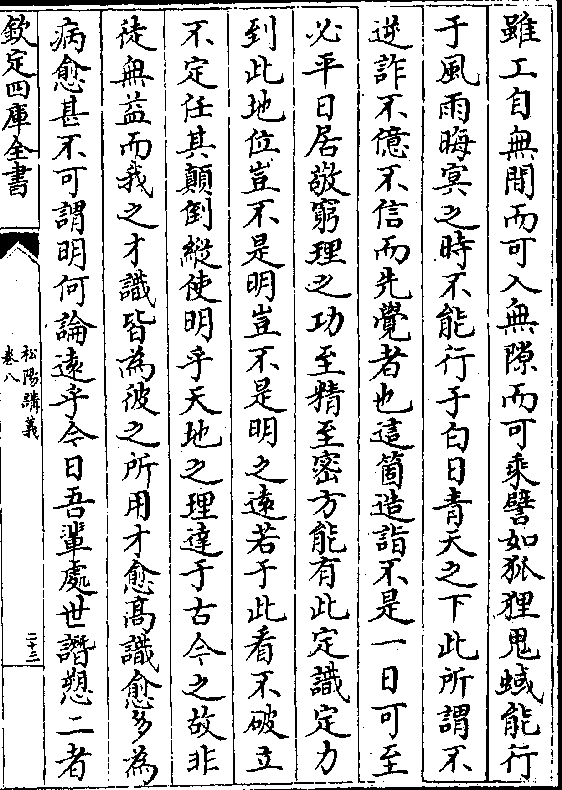 雖工自無間而可入無隙而可乘譬如狐狸鬼蜮能行
于風雨晦冥之時不能行于白日青天之下此所謂不
逆詐不億不信而先覺者也這箇造詣不是一日可至
必平日居敬窮理之功至精至密方能有此定識定力
到此地位豈不是明豈不是明之遠若于此看不破立
不定任其顛倒縱使明乎天地之理達于古今之故非
徒無益而我之才識皆為彼之所用才愈高識愈多為
病愈甚不可謂明何論遠乎今日吾輩處世譖愬二者
欽定四庫全書
松陽講義
卷八
二十三